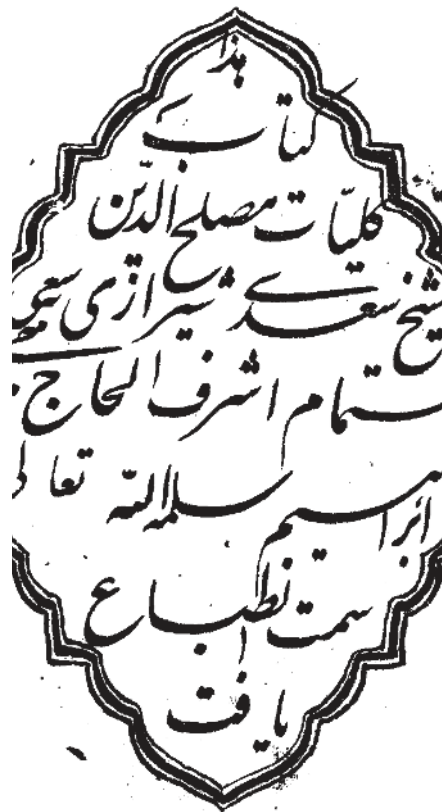 هذا
کتاب
کلیّات مصلح الدّین
شیخ سعدی شیرازی بسعی
اهتمام اشرف الحاج
ابراهیم سلمه الله تعالی
سمت انطباع
یافت